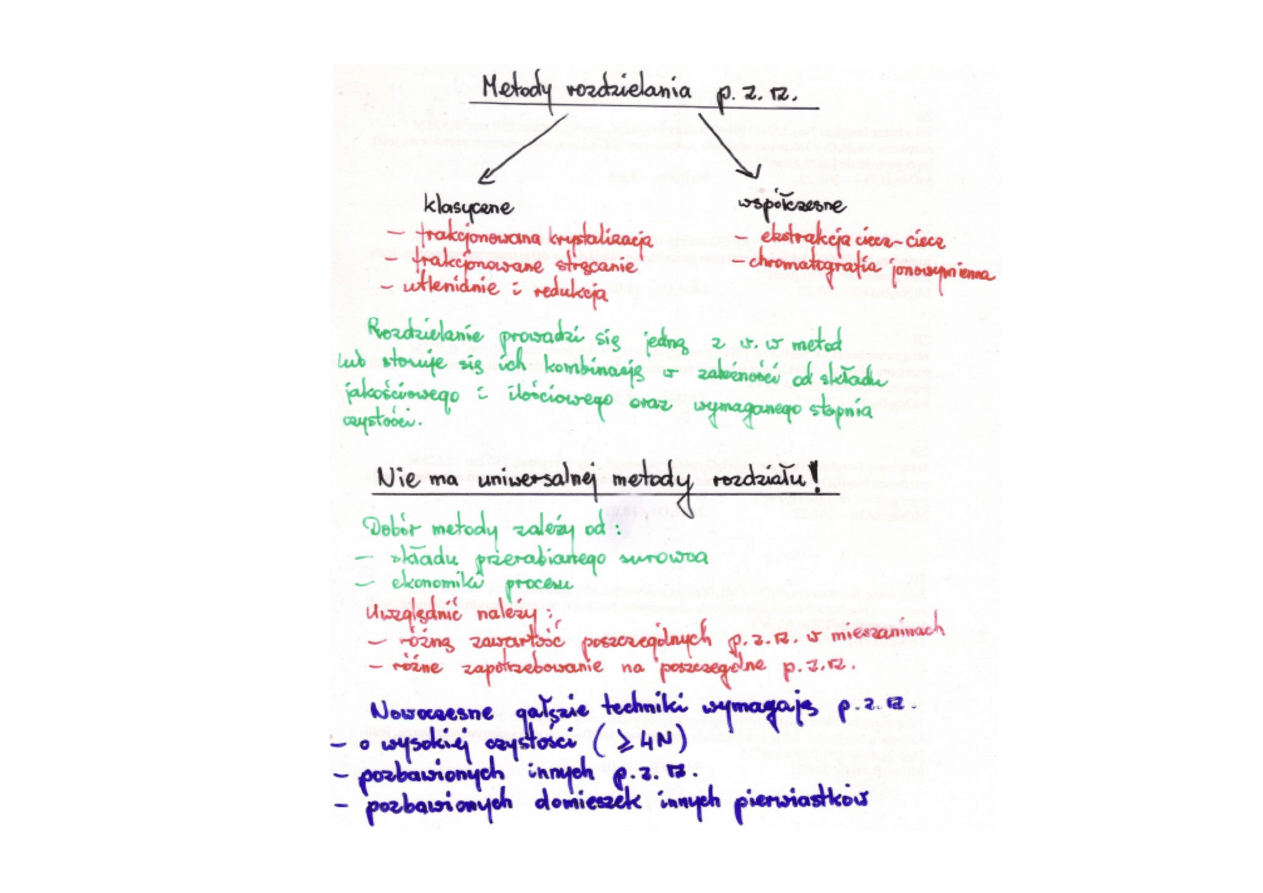 Metody rozdzielania p.z.rz.
klasyczne
- frakcjonowana krystalizacja
- frakcjonowane strącanie
- utlenianie i redukcja
współczesne
- ekstrakcja ciecz-ciecz
- chromatografia jonowymienna
Rozdzielanie prowadzi się jedną z w.w metod
lub stosuje się ich kombinację w zależności od składu
jakościowego i ilościowego oraz wymaganego stopnia
czystości.
Nie ma uniwersalnej metody rozdziału!
Dobór metody zależy od:
- składu przerabianego surowca
- ekonomiki procesu
Uwzględnić należy:
- różną zawartość poszczególnych p.z.rz. w mieszaninach
- różne zapotrzebowanie na poszczególne p.z.rz.
Nowoczesne gałęzie techniki wymagają p.z.rz.
- o wysokiej czystości (≥4N)
- pozbawionych innych p.z.rz.
- pozbawionych domieszek innych pierwiastków